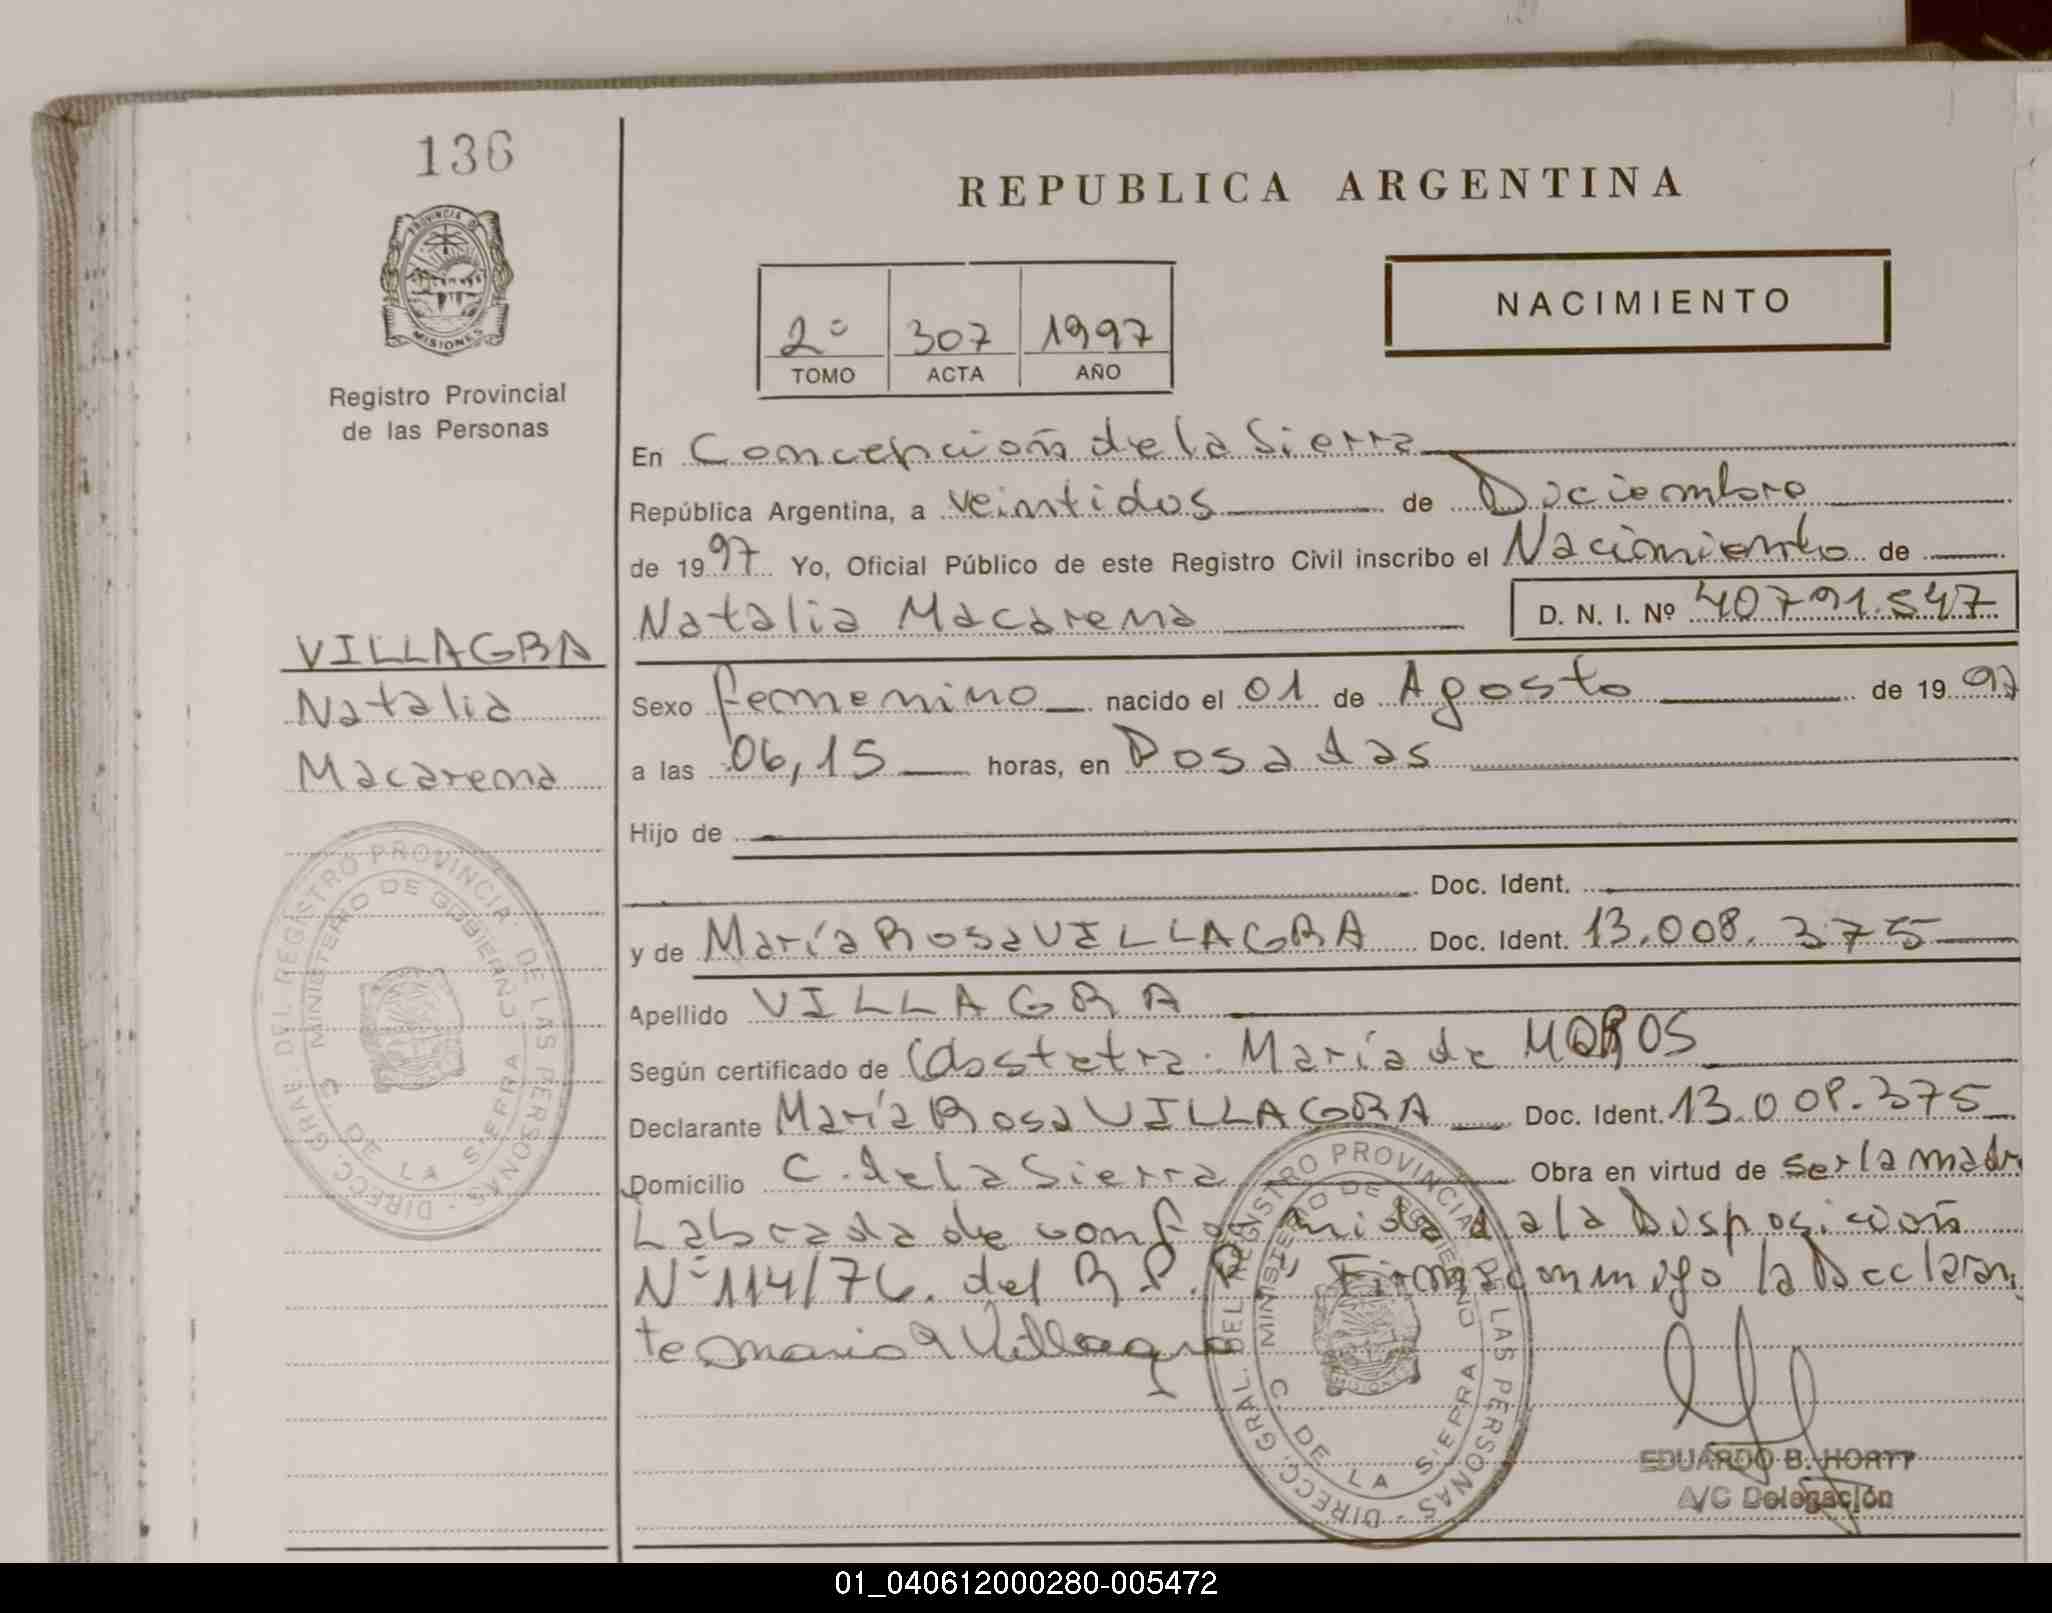 136
PROVINCIA DE
MISIONES
Registro Provincial
de las Personas
VILLAGRA
Natalia
Macarena
DIRECC. GRAL. DEL REGISTRO PROVINCIAL DE LAS PERSONAS
MINISTERIO DE GOBIERNO
C DE LA SIERRA
REPUBLICA ARGENTINA
NACIMIENTO
2º 307 1997
TOMO ACTA AÑO
En Concepcion de la Sierra
República Argentina, a veintidos de Diciembre
de 1997 Yo, Oficial Público de este Registro Civil inscribo el Nacimiento de
Natalia Macarena D. N. I. Nº 40791.547
Sexo femenino nacido el 01 de Agosto de 1997
a las 06,15 horas, en Posadas
Hijo de
Doc. Ident.
y de María Rosa VILLAGRA Doc. Ident. 13.008.375
Apellido VILLAGRA
Según certificado de Obstetra. María de MOROS
Declarante María Rosa VILLAGRA Doc. Ident. 13.008.375
Domicilio C. de la Sierra Obra en virtud de ser la madr
Labrada de conformidad a la Disposicion
Nº 114/76. del R.P.P. Firma conmigo la Declaran
te Maria R Villagra
DIRECC. GRAL. DEL REGISTRO PROVINCIAL DE LAS PERSONAS
MINISTERIO DE GOBIERNO
C DE LA SIERRA
MISIONES
EDUARDO B. HORTT
A/C Delegación
01_040612000280-005472